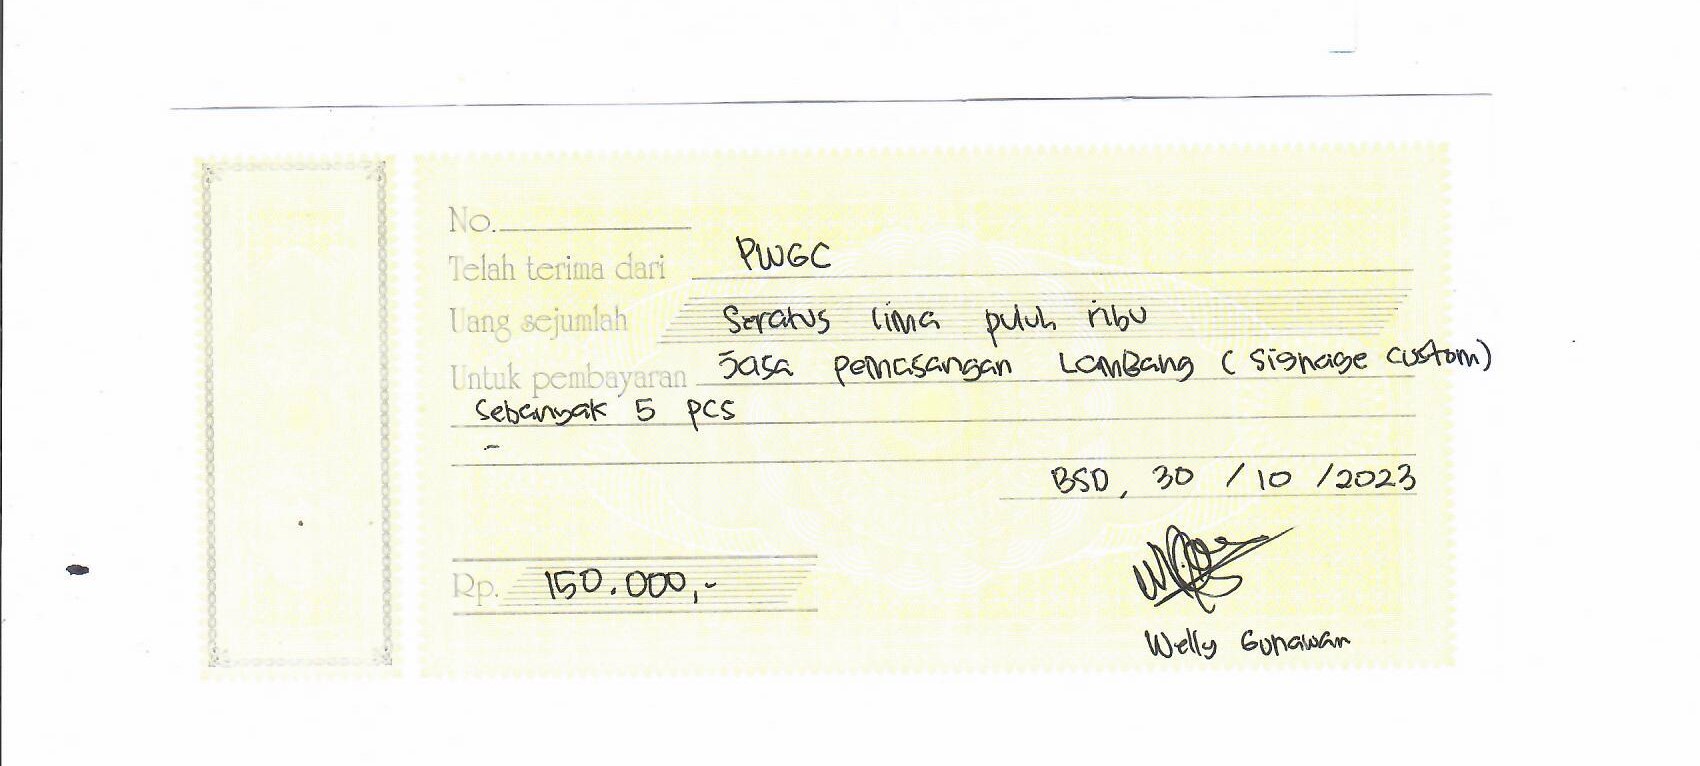 No.
Telah terima dari PWGC
Uang sejumlah Seratus lima puluh ribu
Untuk pembayaran Jasa pemasangan Lambang ( signage custom)
Sebanyak 5 pcs
-
BSD, 30 / 10 / 2023
Rp. 150.000,-
Welly Gunawan